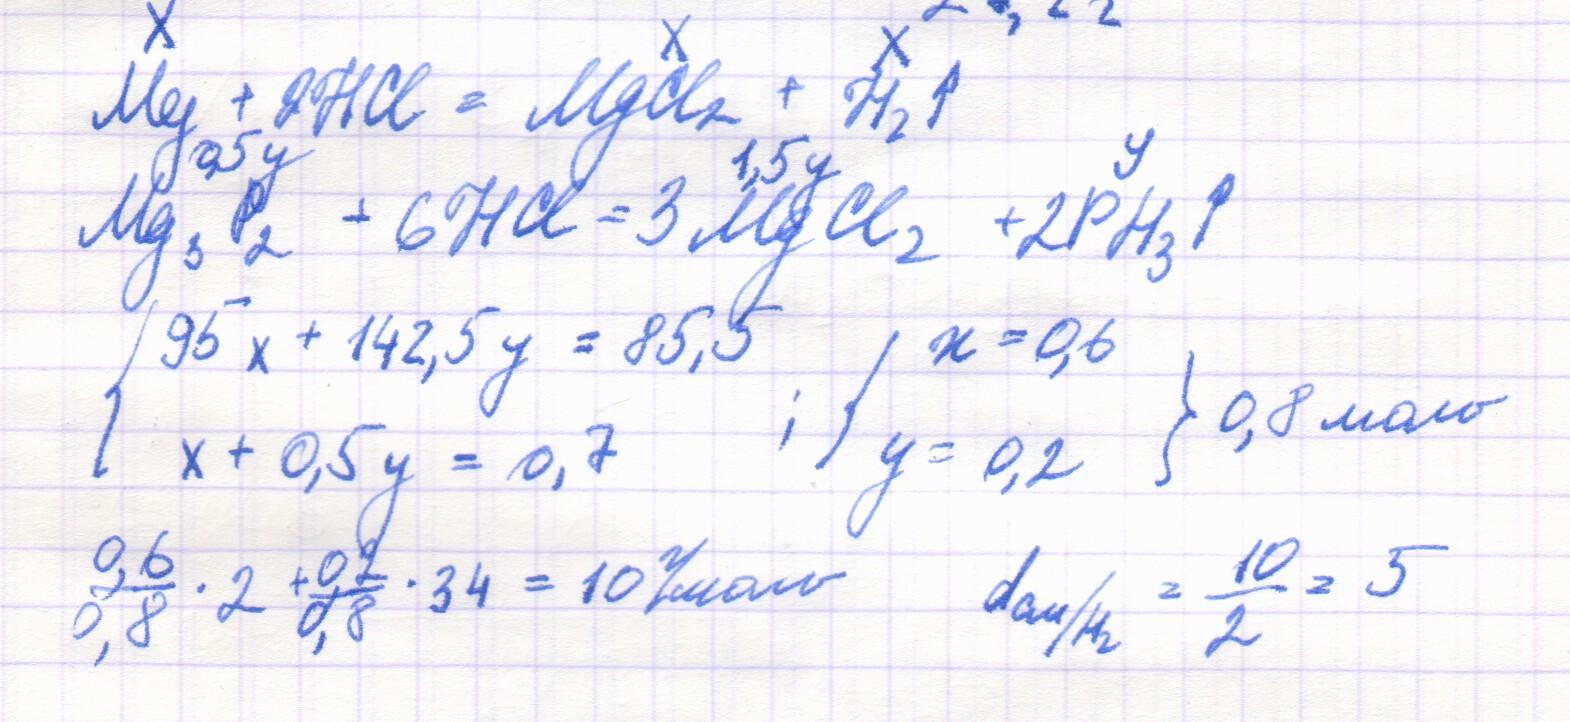 x x x
Mg + 2HCl = MgCl₂ + H₂↑
0,5y 1,5y y
Mg₃P₂ + 6HCl = 3MgCl₂ + 2PH₃↑
{ 95x + 142,5y = 85,5 ; { x = 0,6 } 0,8 моль
x + 0,5y = 0,7 y = 0,2
0,6/0,8 · 2 + 0,2/0,8 · 34 = 10 г/моль d см/H₂ = 10/2 = 5